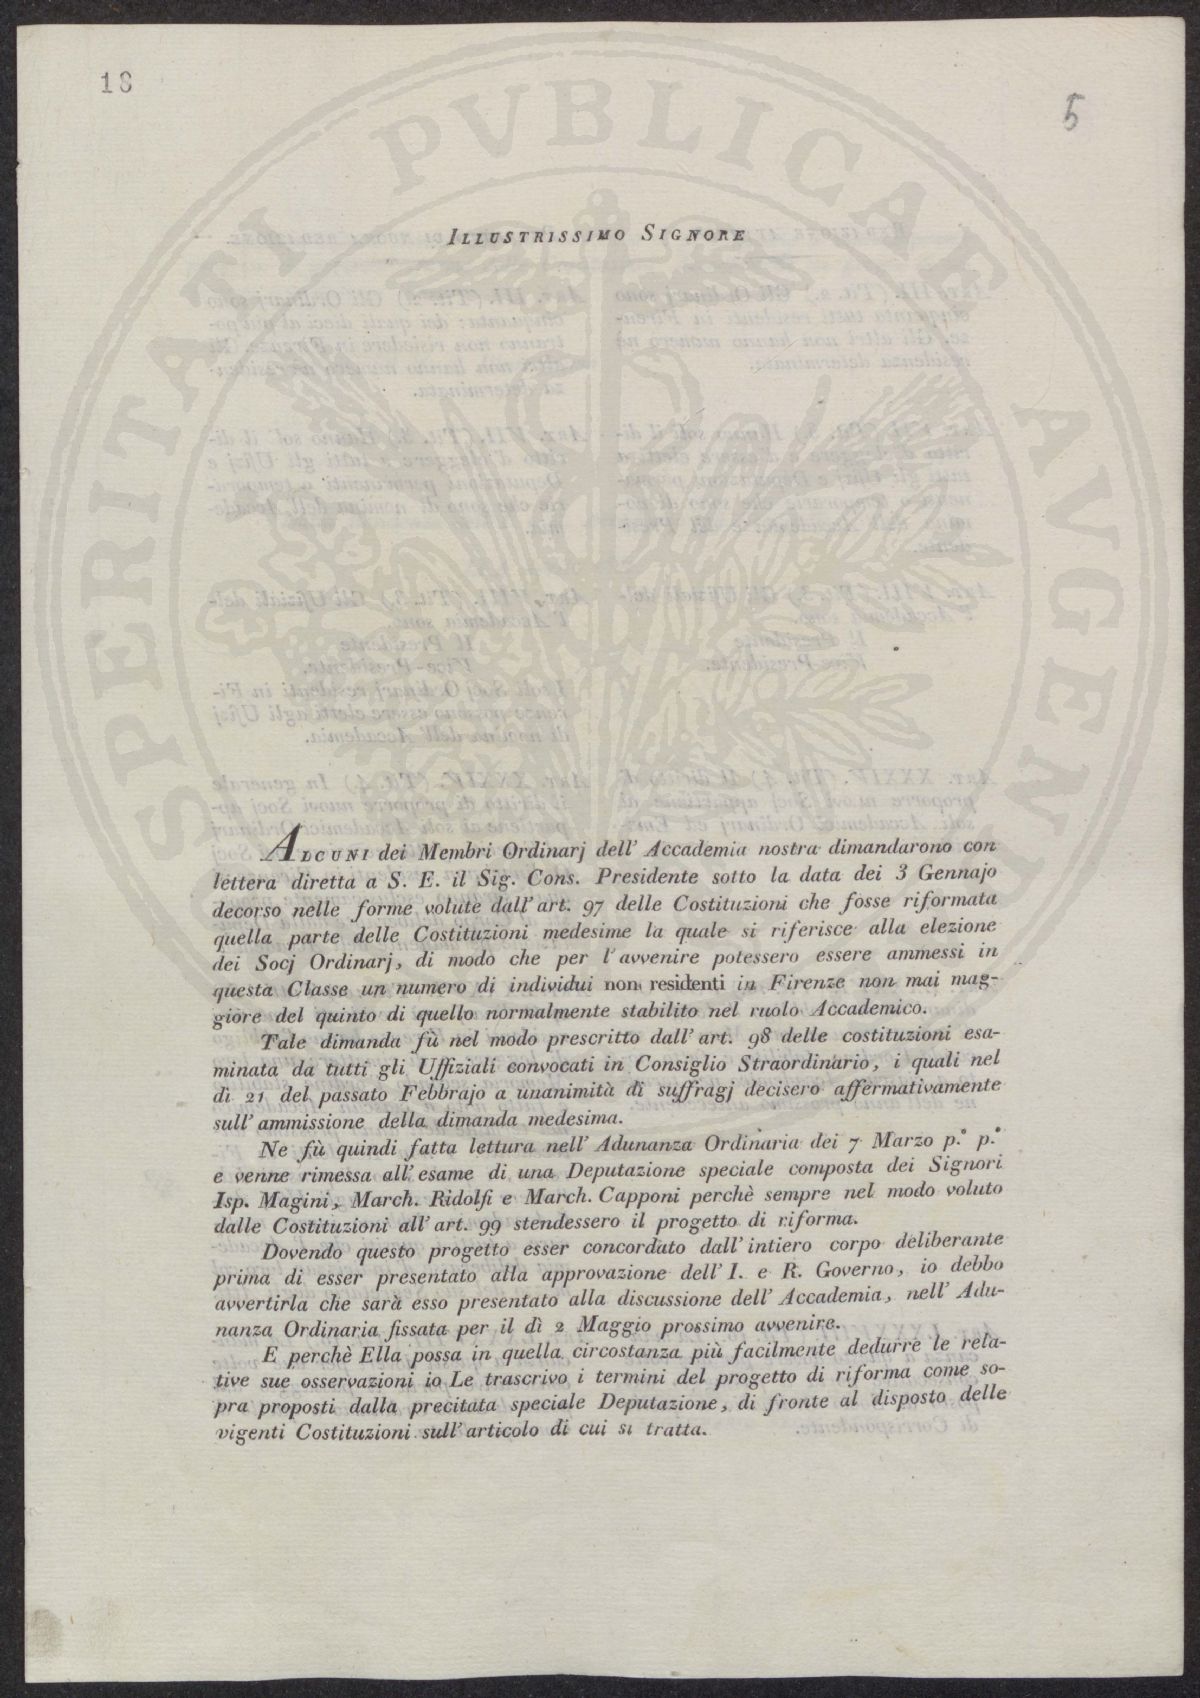 18
5
PROSPERITATI PVBLICAE AVGENDAE
ILLUSTRISSIMO SIGNORE
ALCUNI dei Membri Ordinarj dell' Accademia nostra dimandarono con
lettera diretta a S. E. il Sig. Cons. Presidente sotto la data dei 3 Gennajo
decorso nelle forme volute dall' art. 97 delle Costituzioni che fosse riformata
quella parte delle Costituzioni medesime la quale si riferisce alla elezione
dei Socj Ordinarj, di modo che per l'avvenire potessero essere ammessi in
questa Classe un numero di individui non residenti in Firenze non mai mag-
giore del quinto di quello normalmente stabilito nel ruolo Accademico.
Tale dimanda fù nel modo prescritto dall' art. 98 delle costituzioni esa-
minata da tutti gli Uffiziali convocati in Consiglio Straordinario, i quali nel
dì 21 del passato Febbrajo a unanimità di suffragj decisero affermativamente
sull' ammissione della dimanda medesima.
Ne fù quindi fatta lettura nell' Adunanza Ordinaria dei 7 Marzo p.° p.°
e venne rimessa all' esame di una Deputazione speciale composta dei Signori
Isp. Magini, March. Ridolfi e March. Capponi perchè sempre nel modo voluto
dalle Costituzioni all' art. 99 stendessero il progetto di riforma.
Dovendo questo progetto esser concordato dall' intiero corpo deliberante
prima di esser presentato alla approvazione dell' I. e R. Governo, io debbo
avvertirla che sarà esso presentato alla discussione dell' Accademia, nell' Adu-
nanza Ordinaria fissata per il dì 2 Maggio prossimo avvenire.
E perchè Ella possa in quella circostanza più facilmente dedurre le rela-
tive sue osservazioni io Le trascrivo i termini del progetto di riforma come so-
pra proposti dalla precitata speciale Deputazione, di fronte al disposto delle
vigenti Costituzioni sull' articolo di cui si tratta.